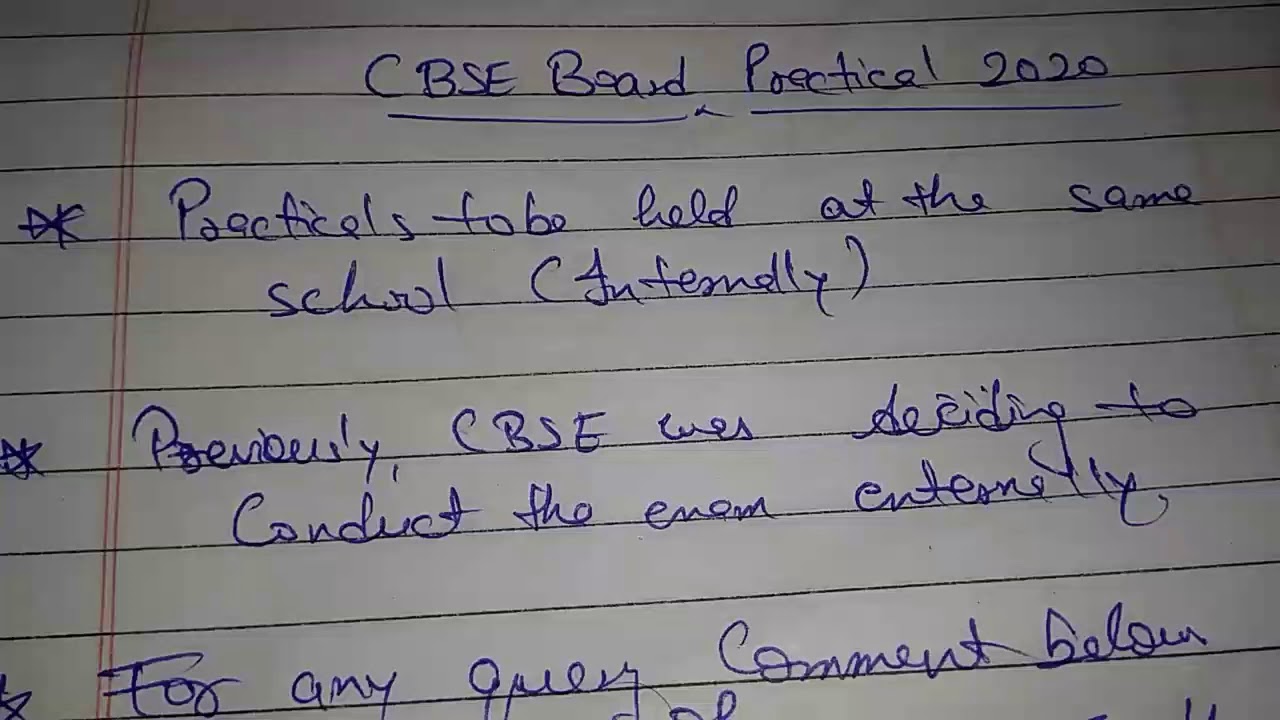 CBSE Board Practical 2020
* Practicals to be held at the same
school (Internally)
* Previously, CBSE was deciding to
Conduct the exam externally,
* For any query Comment below